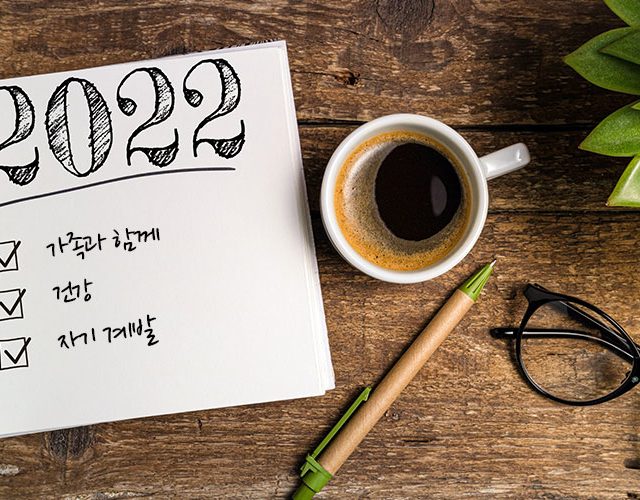 2022
가족과 함께
건강
자기 계발